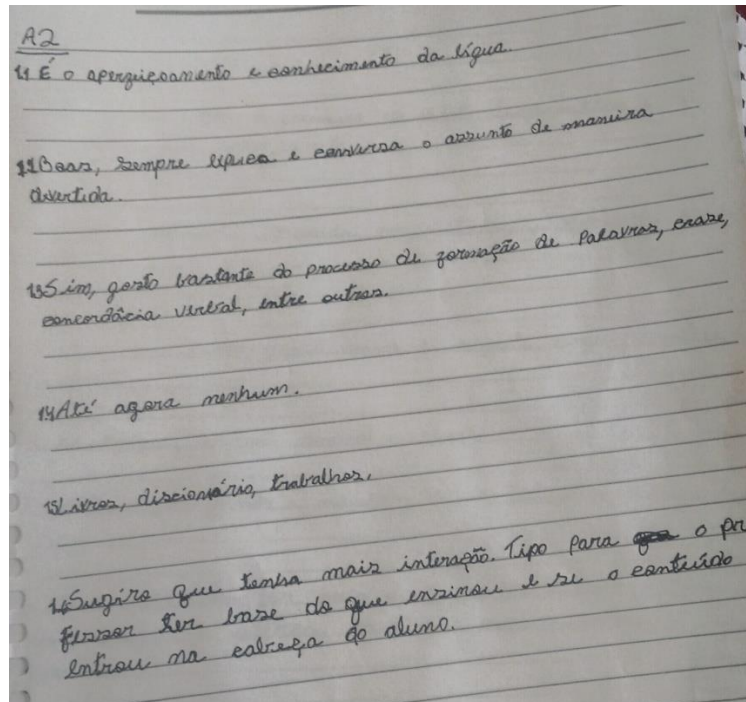 A2
11 É o aperguiçoamento e conhecimento da lígua.
12 Boas, sempre lipica e conversa o assunto de maneira
divertida.
13 Sim, gosto bastante do processo de formação de Palavras, crase,
concordâcia verbal, entre outras.
14 Até agora nenhum.
15 Livros, discionário, trabalhos.
16 Sugiro que tenha mais interação. Tipo para o pr
fessor ter base do que ensinou e se o conteúdo
entrou na cabeça do aluno.